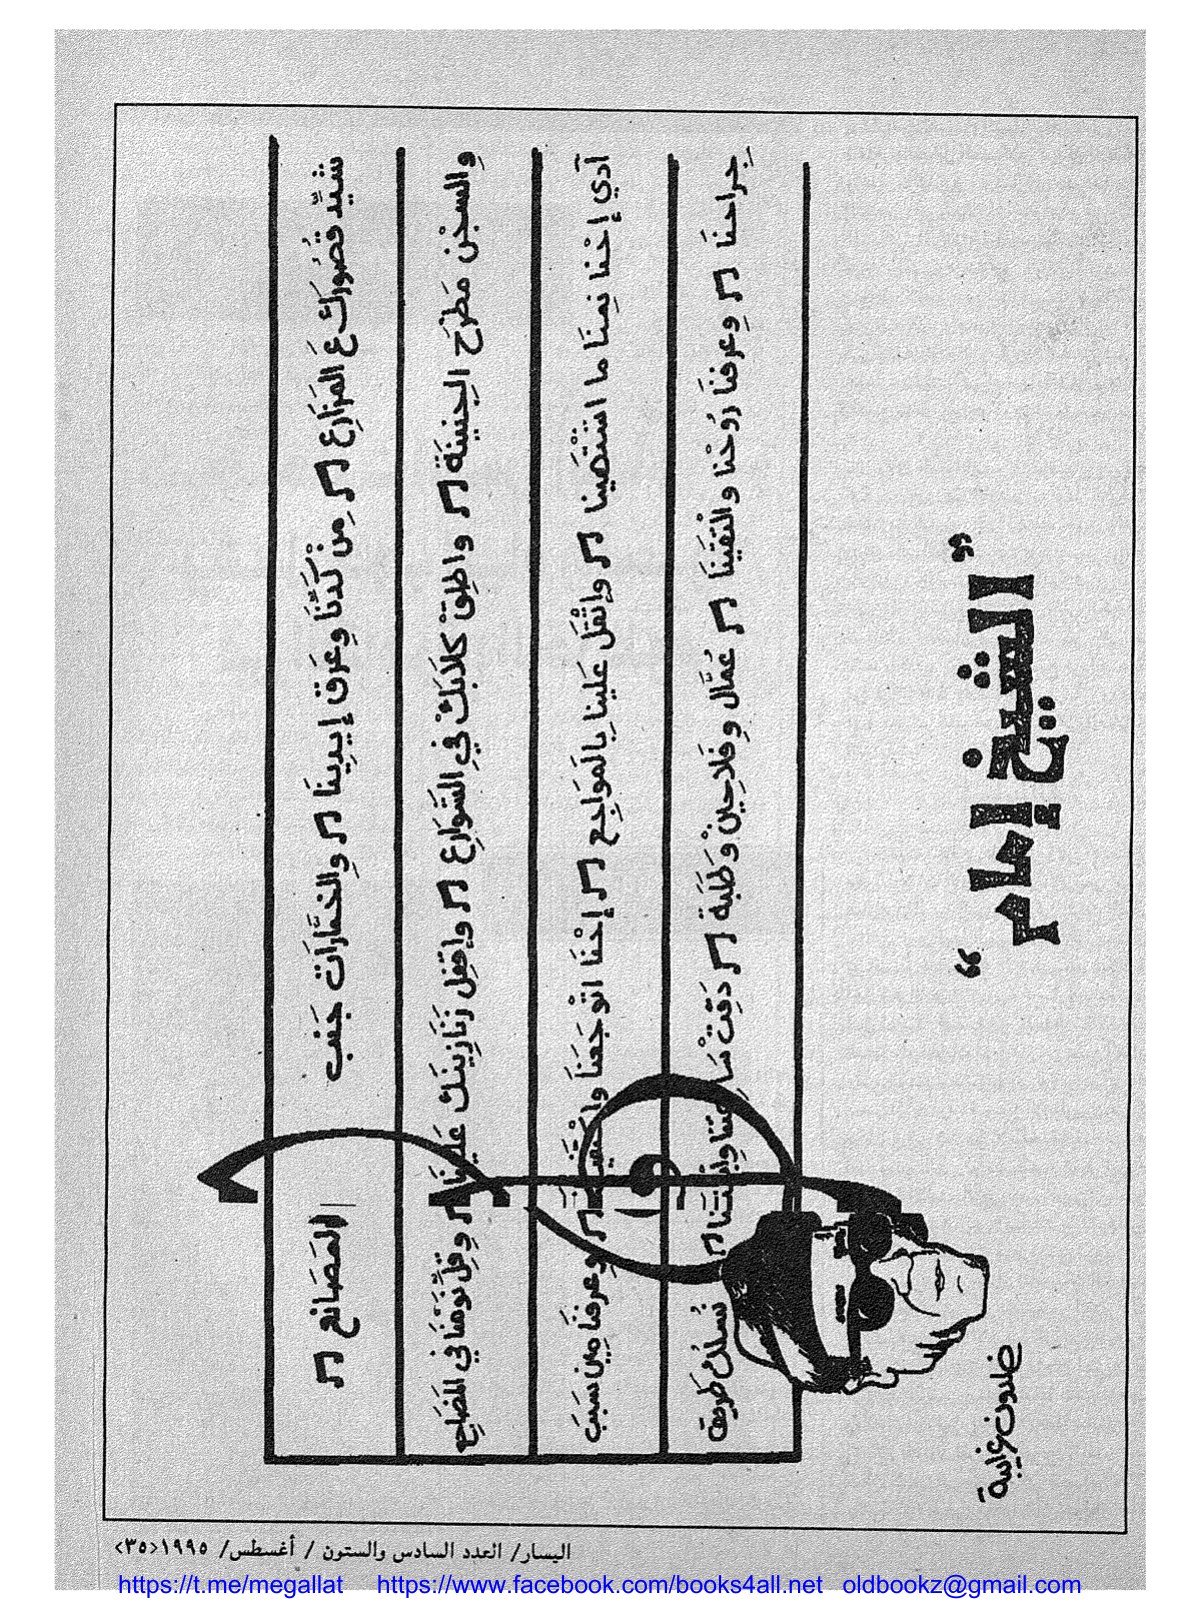 شَيِّد قُصُورَكْ عَ المَزَارِع ♫ مِنْ كَدِّنَا وعَرَق إيدِينَا ♫ والخمَّارَات جَنب المَصَانع ♫
والسجْن مَطْرَح الجِنينَة ♫ واطلِقْ كلابَكْ في الشَّوارِع ♫ واقفِل زَنَازينَك عَلينَا ♫ وقِلّ نومْنَا في المضَاجِع
آدي إحْنا نِمنَا ما اشْتَهَينا ♫ واتْقَل عَلينا بالمَوَاجِع ♫ إحْنَا اتْوجَعْنَا واكْتَفَينَا ♫ وعرفنَا مِين سَبَب
جِراحنَا ♫ وعرفنَا رُوحْنا والتَقَينَا ♫ عُمَّال وفلاحينْ وَطَلَبَة ♫ دَقِتْ سَاعتنا وابْتَدَينَا ♫ نُسلُك طَريق
"الشيخ إمام"
خلدون غرايبة
اليسار/ العدد السادس والستون / أغسطس/ ١٩٩٥<٣٥>
https://t.me/megallat https://www.facebook.com/books4all.net oldbookz@gmail.com